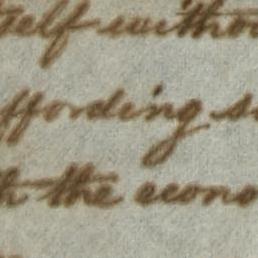 tself witho
ffording s
h the econo